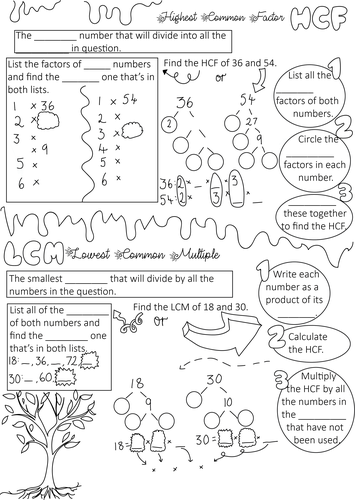 Highest Common Factor HCF
The ________ number that will divide into all the
__________ in question.
List the factors of _____ numbers
and find the _______ one that's in
both lists.
1 x 36
2 x
3 x
x 9
5 x
6 x
1 x 54
2 x
3 x
4 x
5 x
6 x
Find the HCF of 36 and 54.
or
36
2
54
27
9
36: 2 x _ x 3 x _
54: 2 x 3 x 3 x _
1
List all the
________
factors of both
numbers.
2
Circle the
________
factors in each
number.
3
________
these together
to find the HCF.
LCM Lowest Common Multiple
The smallest __________ that will divide by all the
numbers in the question.
List all of the _________
of both numbers and
find the _________ one
that's in both lists.
18: _, 36, _, 72,
30: _, 60,
Find the LCM of 18 and 30.
or
18
9
30
10
18= x x _
30= x x _
_ x _ x _ x _
1
Write each
number as a
product of its
_______.
2
Calculate
the HCF.
3
Multiply
the HCF by all
the numbers in
the _________
that have not
been used.